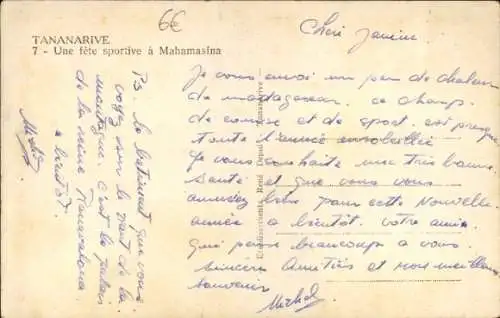 6€
TANANARIVE
7 - Une fête sportive à Mahamasina
Chère Janine
Je vous envoi un peu de chaleur
de madagascar. ce champ
de course et de sport. est presque
toute l'année ensoleillée
Je vous souhaite une très bonne
Santé et que vous vous
amusiez bien pour cette Nouvelle
année a bientôt. votre amie
qui pense beaucoup a vous.
Sincère Amitiés et mon meilleur
souvenir
Michel
PS. le batiment que vous
voyez sur le haut de la
montagne. c'est le palais
de la reine Ranavalona
a bientot.
Michel